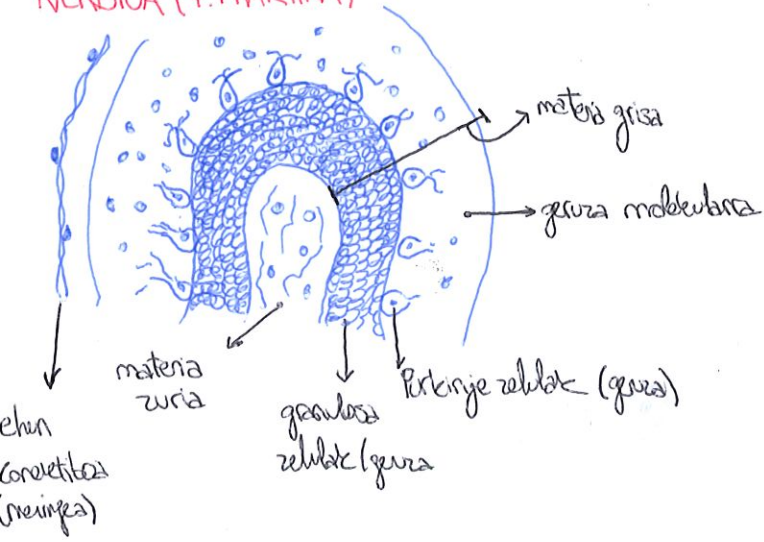 materia grisa
geruza molekularra
materia
zuria
granulosa
zelulak (geruza
Purkinje zelulak (geruza)
ehun
konektiboa
(meningea)